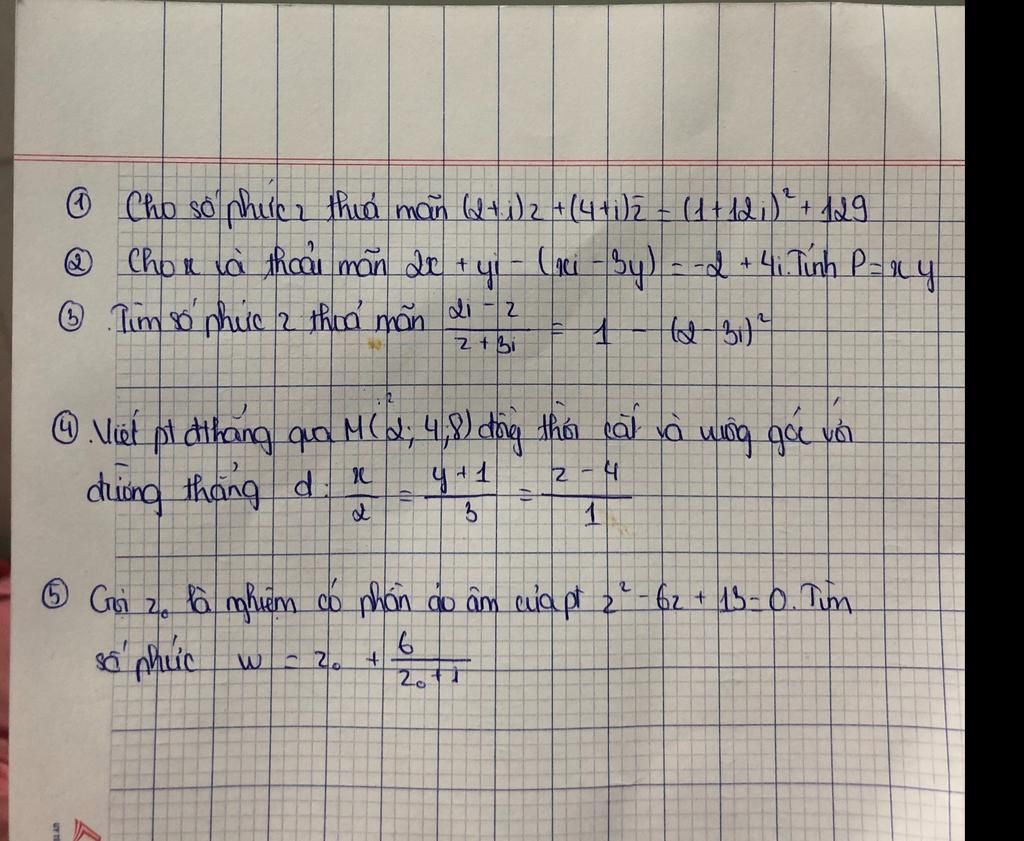 ① Cho số phức z thoả mãn (2+i)z + (4+i)z̄ = (1+12i)² + 129
② Cho x và thoả mãn 2x + yi - (xi - 3y) = -2 + 4i. Tính P = x y
③ Tìm số phức z thoả mãn \frac{2i - z}{z + 3i} = 1 - (2 - 3i)²
④ Viết pt đthẳng qua M(2; 4, 8) đồng thời cắt và vuông góc với
đường thẳng d: \frac{x}{2} = \frac{y+1}{3} = \frac{z-4}{1}
⑤ Gọi z₀ là nghiệm có phần ảo âm của pt z² - 6z + 13 = 0. Tìm
số phức w = z₀ + \frac{6}{z₀ + i}